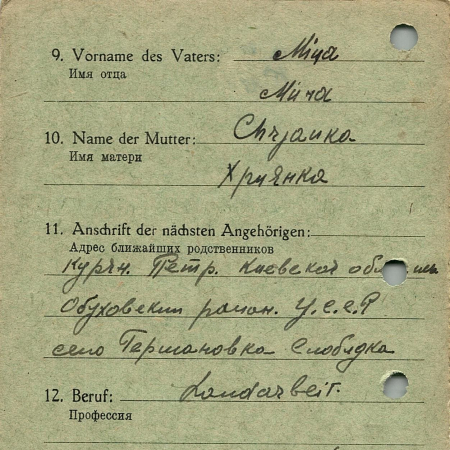 9. Vorname des Vaters: Мича
Имя отца
Мича
10. Name der Mutter:
Имя матери
Хриянка
11. Anschrift der nächsten Angehörigen:
Адрес ближайших родственников
Петр. Киевской
Обуховский район. У.С.С.Р
село Германовка Слободка
12. Beruf: Landarbeit.
Профессия